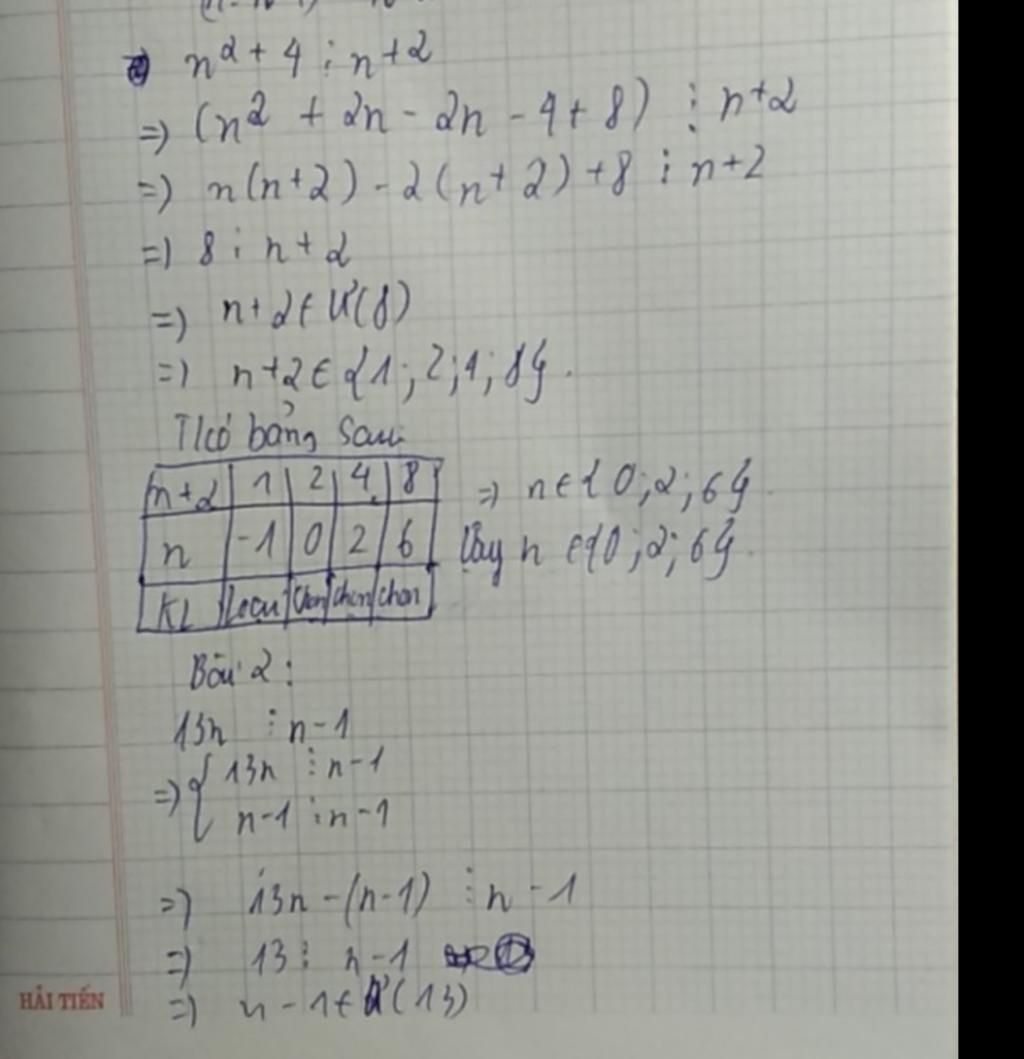 n² + 4 ⋮ n+2
=> (n² + 2n - 2n - 4 + 8) ⋮ n+2
=> n(n+2) - 2(n+2) + 8 ⋮ n+2
=> 8 ⋮ n+2
=> n+2 ∈ Ư(8)
=> n+2 ∈ {1; 2; 4; 8}.
có bảng sau
n+2 | 1 | 2 | 4 | 8 => n ∈ {0; 2; 6}.
n | -1 | 0 | 2 | 6 Vậy n ∈ {0; 2; 6}.
KL | Loại | Chọn | chọn | chọn
Bài 2:
13n ⋮ n-1
=> { 13n ⋮ n-1
n-1 ⋮ n-1
=> 13n - (n-1) ⋮ n-1
=> 13 ⋮ n-1
=> n-1 ∈ Ư(13)
HẢI TIẾN